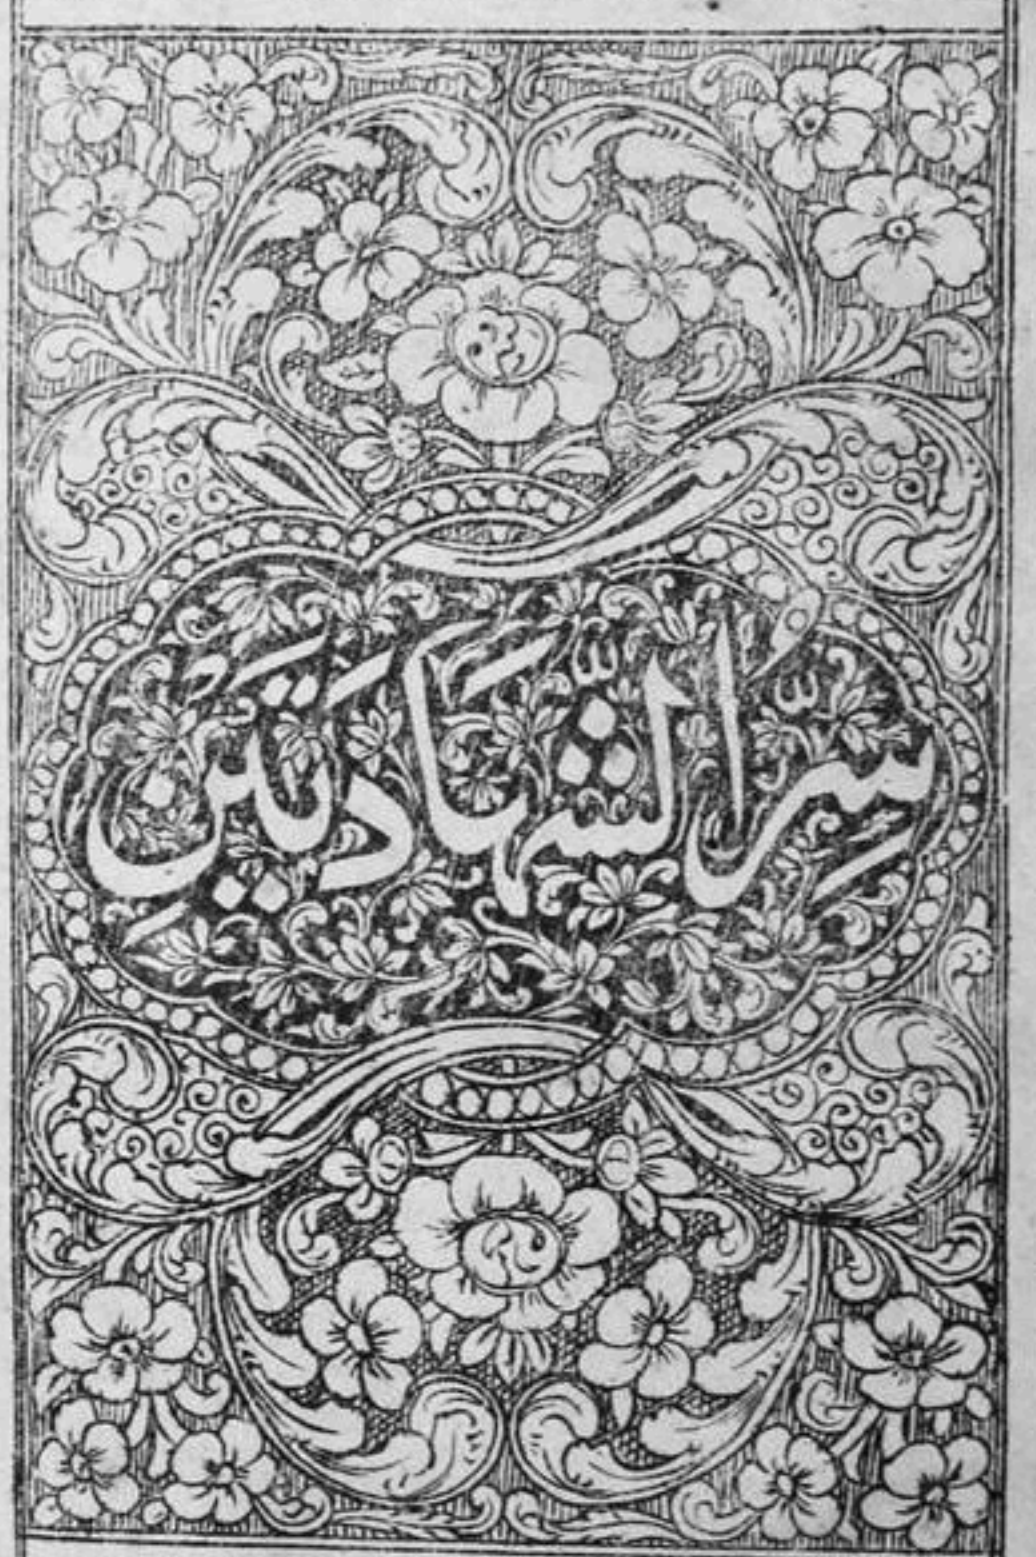 سِرُّ الشَّهَادَتَيْنِ